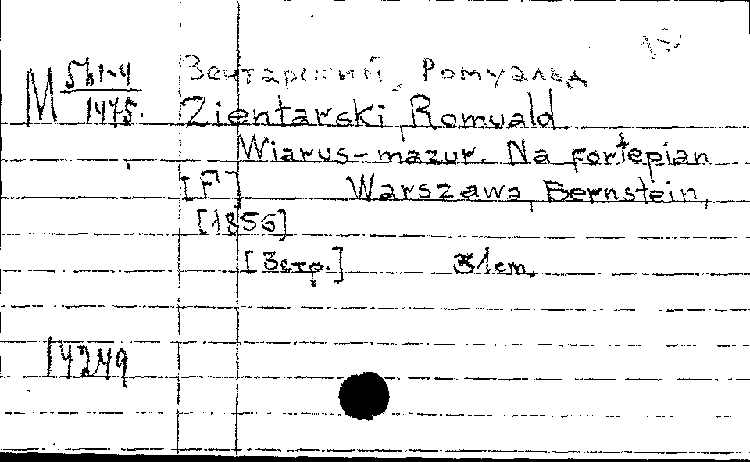 M 561-4
1475.
Зентарский, Ромуальд
Zientarski, Romuald
Wiarus-mazur. Na fortepian
[F] Warszawa, Bernstein,
[1856]
[3стр.] 31cm.
14249